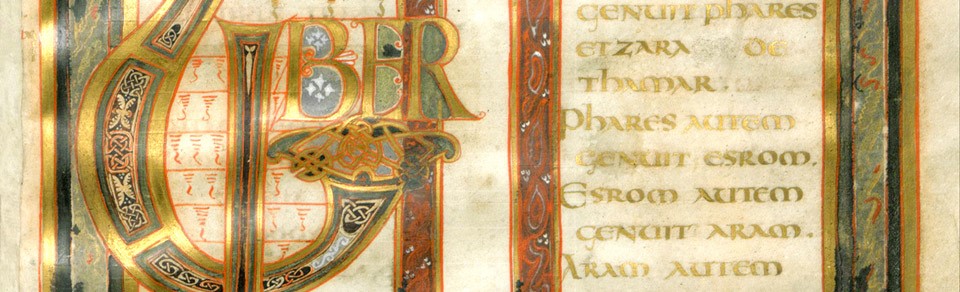 LIBER
GENUIT PHARES
ET ZARA DE
THAMAR.
PHARES AUTEM
GENUIT ESROM.
ESROM AUTEM
GENUIT ARAM.
ARAM AUTEM